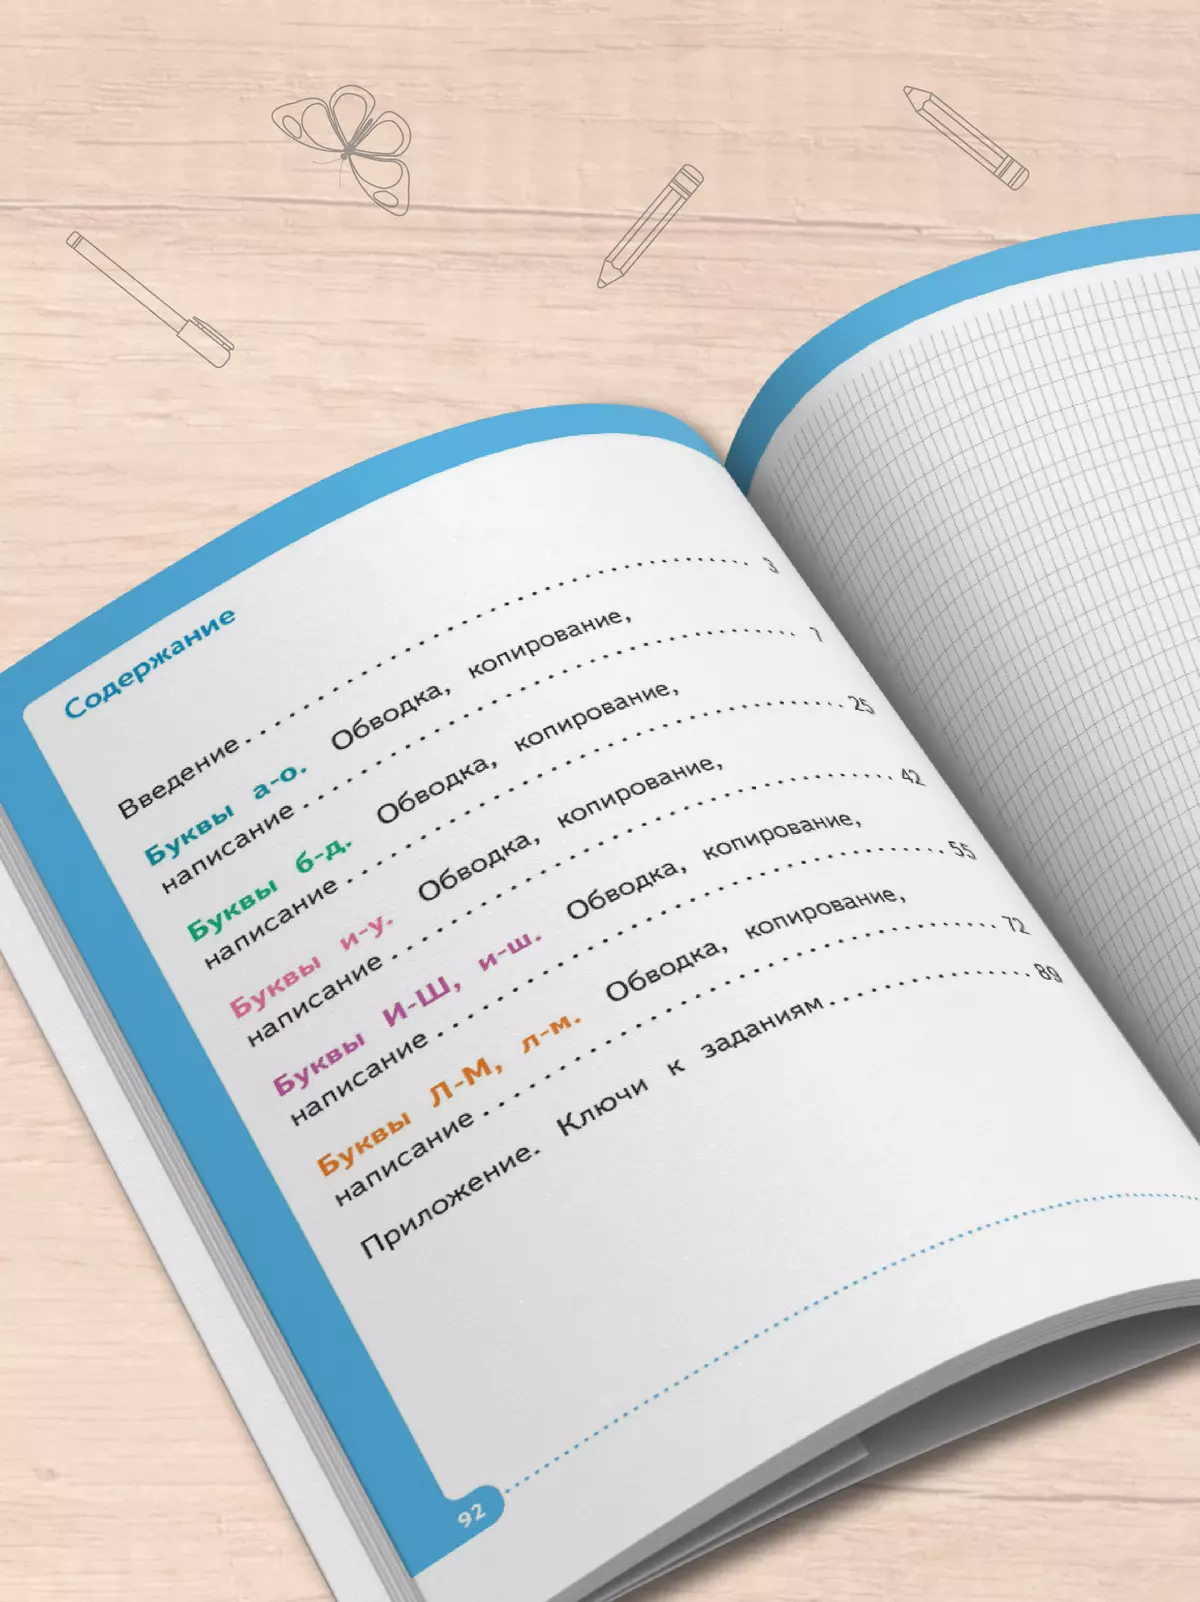 Содержание
Введение........................................ 3
Буквы а-о. Обводка, копирование,
написание........................................ 7
Буквы б-д. Обводка, копирование,
написание........................................ 25
Буквы и-у. Обводка, копирование,
написание........................................ 42
Буквы И-Ш, и-ш. Обводка, копирование,
написание........................................ 55
Буквы Л-М, л-м. Обводка, копирование,
написание........................................ 72
Приложение. Ключи к заданиям............... 89
92